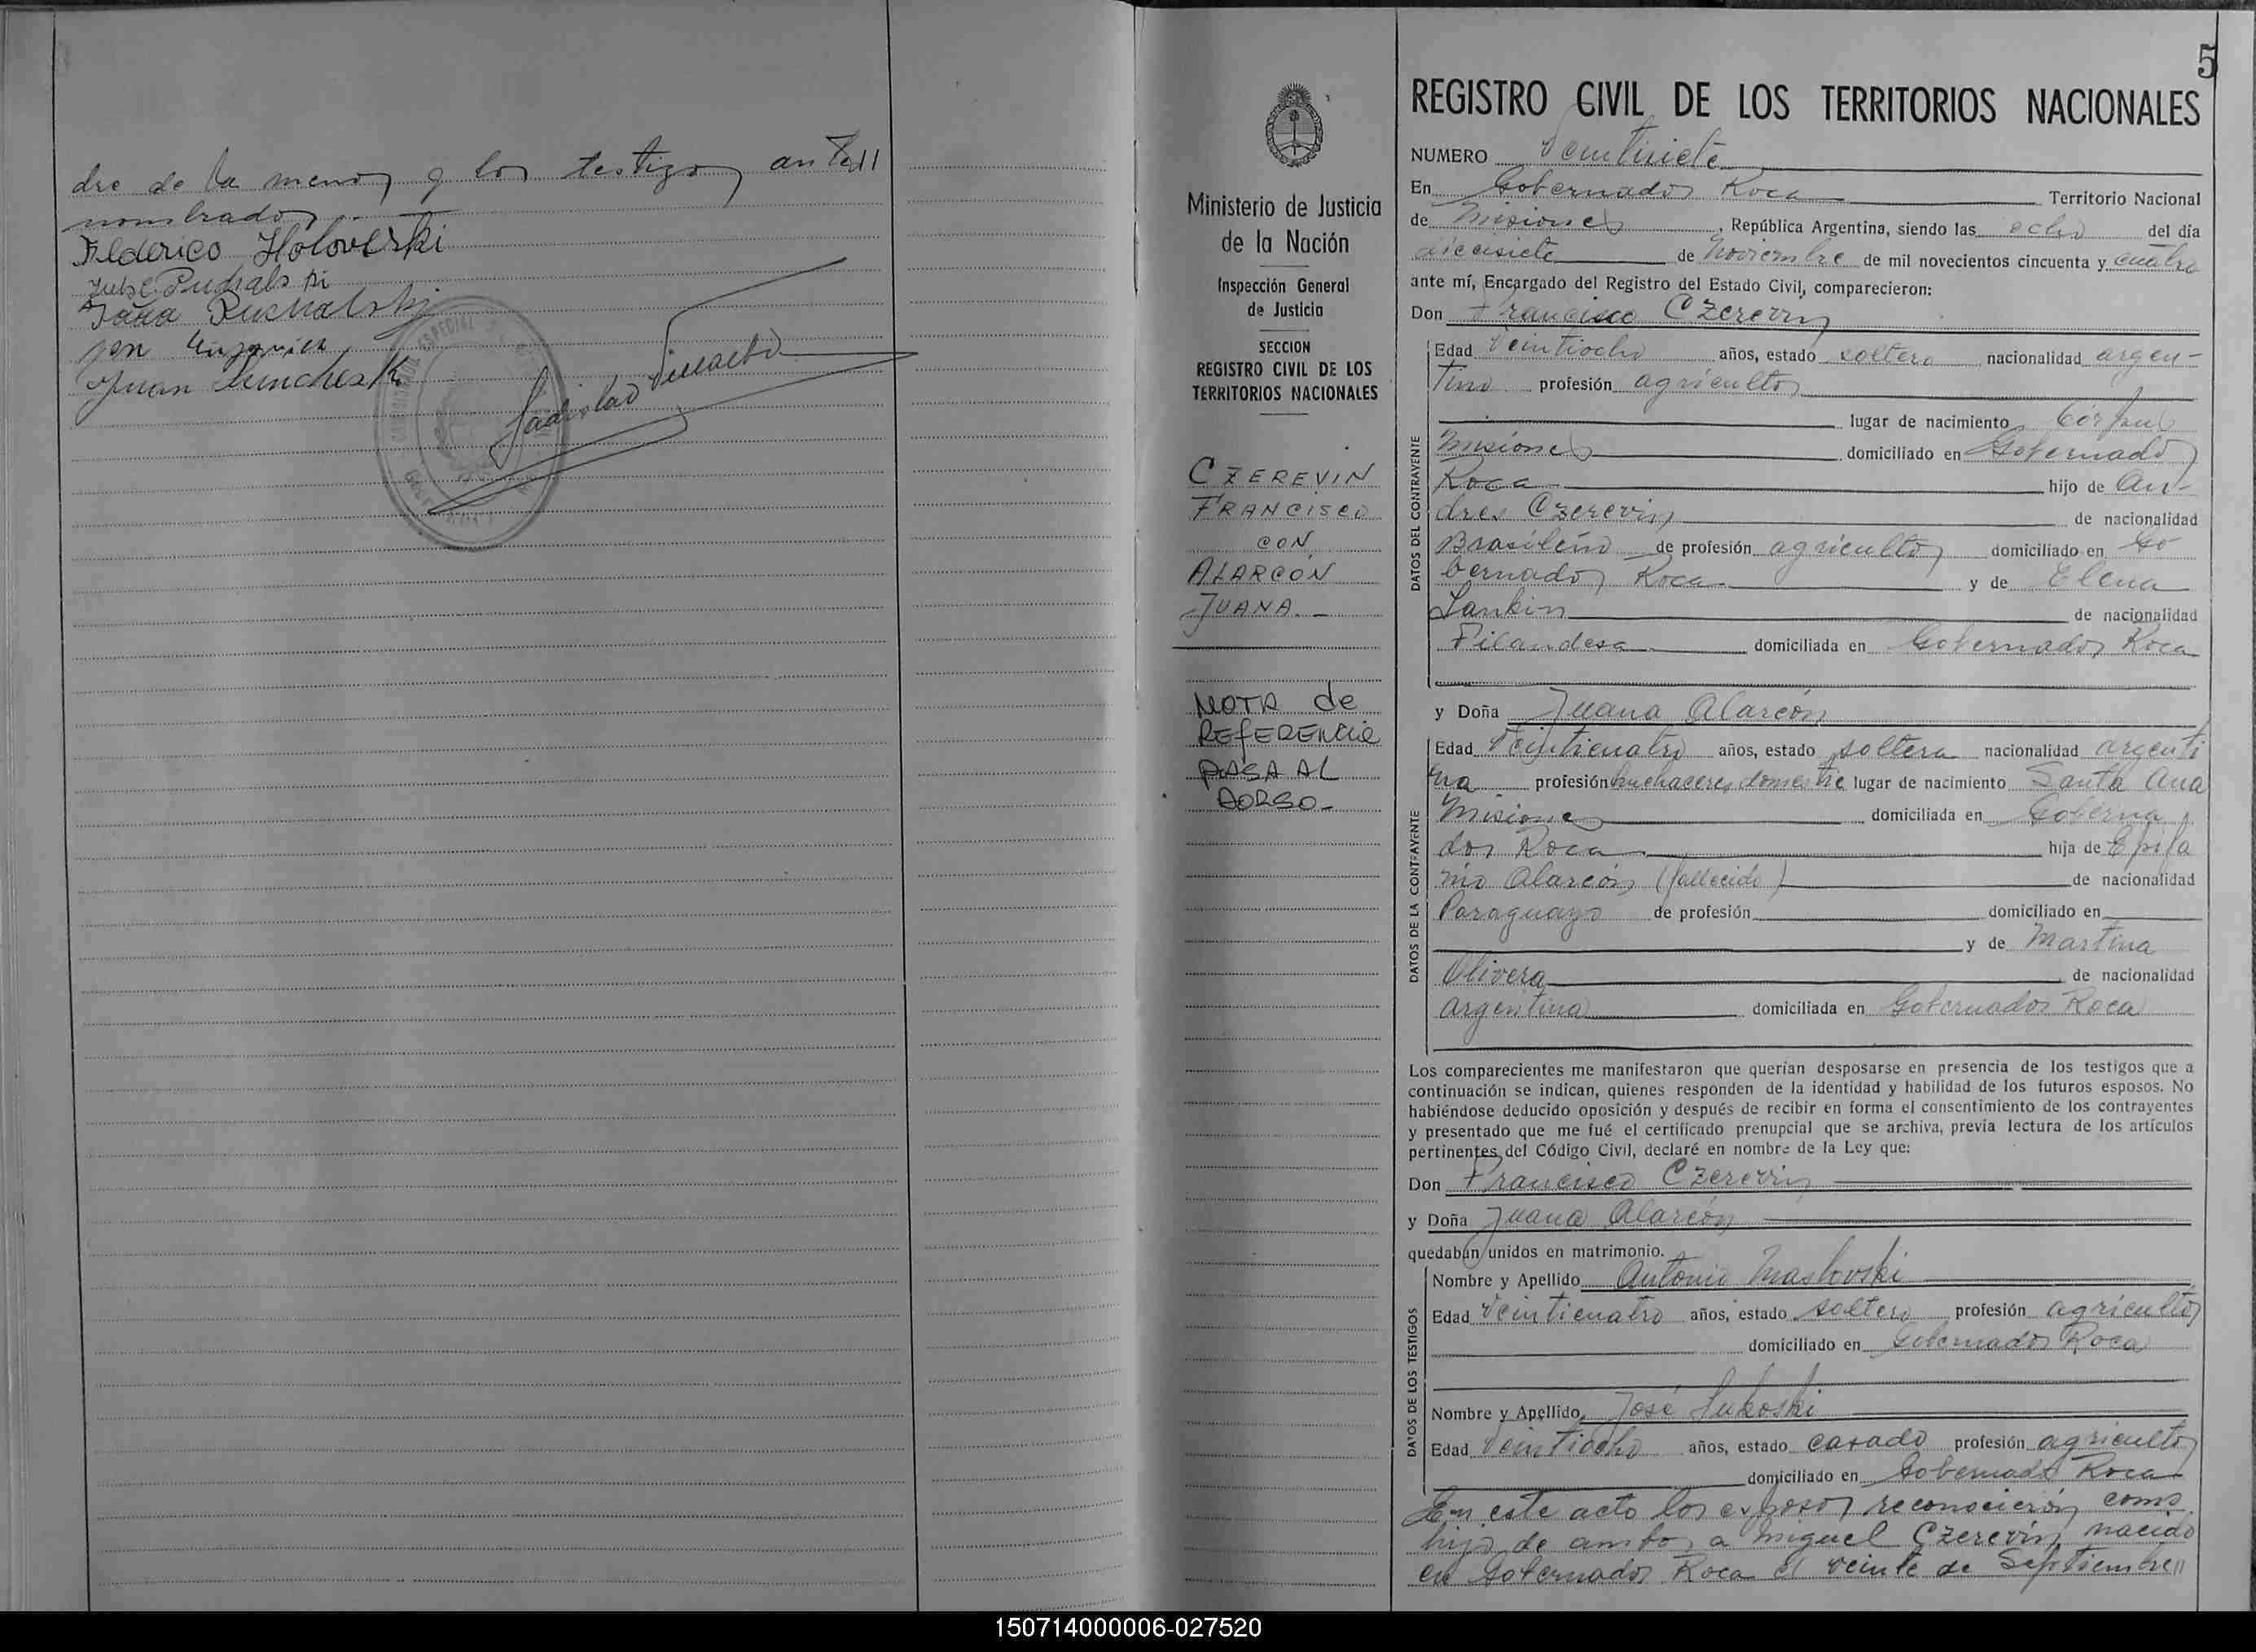 dre de la menor y los testigos antes
nombrados
Federico Holoveski
José Puchalski
Puchalski
por
Juan
Ladislao
5
Ministerio de Justicia
de la Nación
Inspección General
de Justicia
SECCION
REGISTRO CIVIL DE LOS
TERRITORIOS NACIONALES
CZEREVIN
FRANCISCO
CON
ALARCÓN
JUANA
NOTA de
REfERENCIA
PASA AL
DORSO
REGISTRO CIVIL DE LOS TERRITORIOS NACIONALES
NUMERO Veintisiete
En Gobernador Roca Territorio Nacional
de Misiones, República Argentina, siendo las ocho del día
diecisiete de Noviembre de mil novecientos cincuenta y cuatro
ante mí, Encargado del Registro del Estado Civil, comparecieron:
Don Francisco Czerevin
Edad Veintiocho años, estado soltero nacionalidad argen-
tino profesión agricultor
lugar de nacimiento Corpus
Misiones domiciliado en Gobernador
Roca hijo de An-
dres Czerevin de nacionalidad
Brasileño de profesión agricultor domiciliado en Go
bernador Roca y de Elena
Lankin de nacionalidad
Filandesa domiciliada en Gobernador Roca
DATOS DEL CONTRAYENTE
y Doña Juana Alarcón
Edad Veinticuatro años, estado soltera nacionalidad argenti
na profesión domestic lugar de nacimiento Santa Ana
Misiones domiciliada en Goberna
dor Roca hija de Epifa
nio Alarcón (fallecido) de nacionalidad
Paraguayo de profesión domiciliado en
y de Martina
Olivera de nacionalidad
argentina domiciliada en Gobernador Roca
DATOS DE LA CONTRAYENTE
Los comparecientes me manifestaron que querían desposarse en presencia de los testigos que a
continuación se indican, quienes responden de la identidad y habilidad de los futuros esposos. No
habiéndose deducido oposición y después de recibir en forma el consentimiento de los contrayentes
y presentado que me fué el certificado prenupcial que se archiva, previa lectura de los artículos
pertinentes del Código Civil, declaré en nombre de la Ley que:
Don Francisco Czerevin
y Doña Juana Alarcón
quedaban unidos en matrimonio.
Nombre y Apellido Antonio Maslovski
Edad Veinticuatro años, estado soltero profesión agricultor
domiciliado en Gobernador Roca
Nombre y Apellido José Sukoski
Edad Veintiocho años, estado casado profesión agricultor
domiciliado en Gobernador Roca
DATOS DE LOS TESTIGOS
En este acto los esposos reconocieron como
hijo de ambos a Miguel Czerevin, nacido
en Gobernador Roca el veinte de Septiembre
150714000006-027520